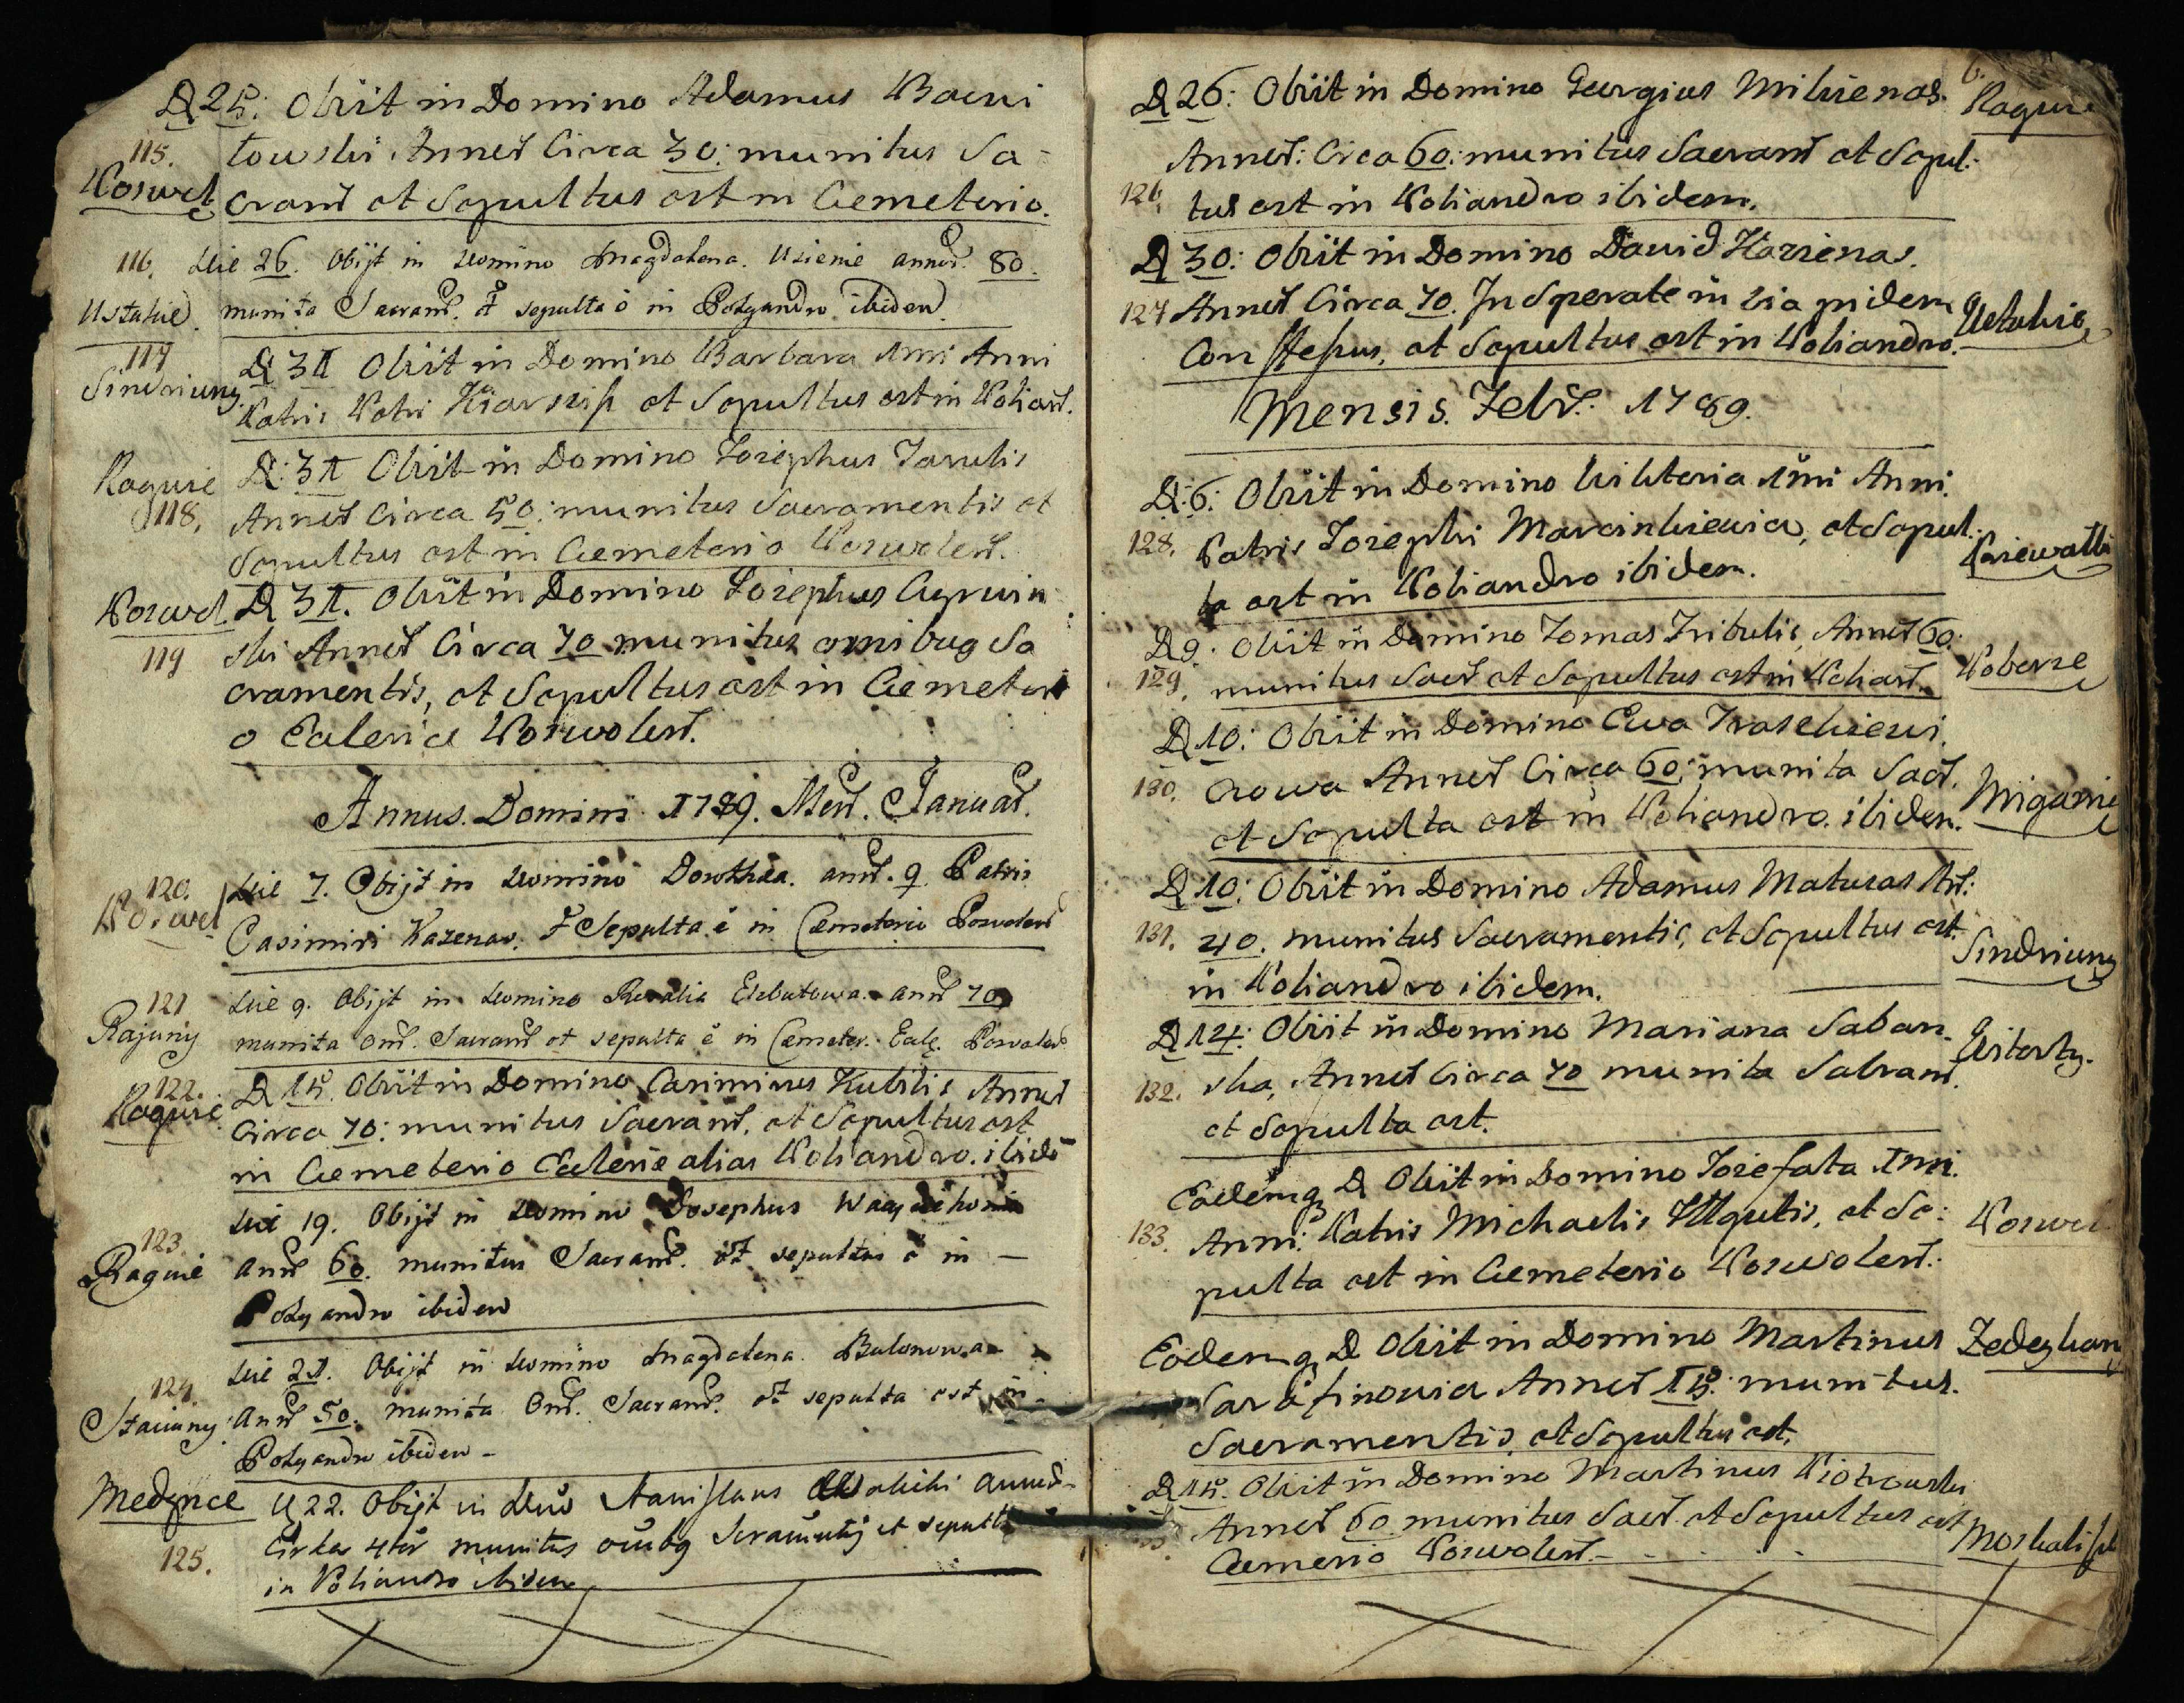 D 25: Obiit in Domino Adamus Bacewi
115. towski Annor̃ Circa 30: munitus Sa-
Poswol cram̃ et Sepultus est in Cemeterio.
116. Die 26. Obijt in Domino Magdalena Usienie annor̃. 80.
Ustukie. munita Sacram̃. et sepulta ẽ in Polyandro ibidem.
117 D 31 Obiit in Domino Barbara 1mi Anni
Sindriuny. Patris Petri et Sepultus est in Poliañ.
Raguie D: 31 Obiit in Domino Josephus Jarulis
118. Annor̃ Circa 50: munitus Sacramentis et
Sepultus est in Cemeterio Poswoleñ.
Poswol D 31. Obiit in Domino Josephus
119 ski Annor̃ Circa 70 munitus omnibus Sa
cramentis, et Sepultus est in Cemeteri
o Ecclesiæ Poswoleñ.
Annus. Domini 1789. Meñ. Januar̃.
120. Die 7. Obijt in Domino Dorothea. annor̃. 9. Patris
Poswol Casimiri Kazenas. et Sepulta ẽ in Cemeterio Poswoleñ
121 Die 9. Obijt in Domino Rozalia Elzbutowa. annor̃ 70
Rajuny munita Om̃. Sacram̃ et sepulta ẽ in Cemeter. Eccle. Poswoleñ.
122. D 15. Obiit in Domino Casimirus Kubilis Annor̃
Raguie Circa 70: munitus Sacram̃. et Sepultus est
in Cemeterio Ecclesiæ alias Poliandro. ibidẽ
123. Die 19. Obijt in Domino Josephus
Raguie annor̃ 60. munitus Sacram̃. et sepultus ẽ in —
Polyandro ibidem
124. Die 21. Obijt in Domino Magdalena Butonowa
Staciuny annor̃ 50. munita Om̃. Sacram̃. et sepulta est in
Polyandro ibidem -
Medynce D 22. Obijt in Dño Stanislaus annor̃
125. Circa munitus Sacramentis et sepultus
in Poliandro ibidem
D 26: Obiit in Domino Georgius Mikienas. Raguie
Annor̃: Circa 60: munitus Sacram̃ et Sepul:
126. tus est in Poliandro ibidem.
D 30: Obiit in Domino David Kazienas.
127 Annor̃ Circa 70. Insperate in via pridem Ustukie
Confessus, et Sepultus est in Poliandro.
Mensis. Febr̃.: 1789.
D: 6: Obiit in Domino Wikteria 1mi Anni.
128. Patris Josephi Marcinkiewicz, et Sepul:
ta est in Poliandro ibidem.
D 9: Obiit in Domino Tomas Tribulis, Annor̃ 60:
129. munitus Sacr̃ et Sepultus est in Poliañ. Poberze
D 10: Obiit in Domino Ewa Traszkiewi
130. czowa Annor̃ Circa 60: munita Sacr̃. Migonie
et Sepulta est in Poliandro. ibidem.
D 10: Obiit in Domino Adamus Matusas Añ:
131. 40. munitus Sacramentis, et Sepultus est. Sindriuny
in Poliandro ibidem.
D 14: Obiit in Domino Mariana Saban
132. ska, Annor̃ Circa 70 munita Sakram̃.
et Sepulta est.
Eademq D Obiit in Domino Josefata 1mi.
133. Anni: Patris Michaelis et Se: Poswol
pulta est in Cemeterio Poswoleñ.
Eodemq D Obiit in Domino Martinus
Sarafinowicz Annor̃ 15: munitus.
Sacramentis, et Sepultus est.
D 15. Obiit in Domino Martinus Piotrowski
Annor̃ 60 munitus Sacr̃. et Sepultus est
Cemerio Poswoleñ. -